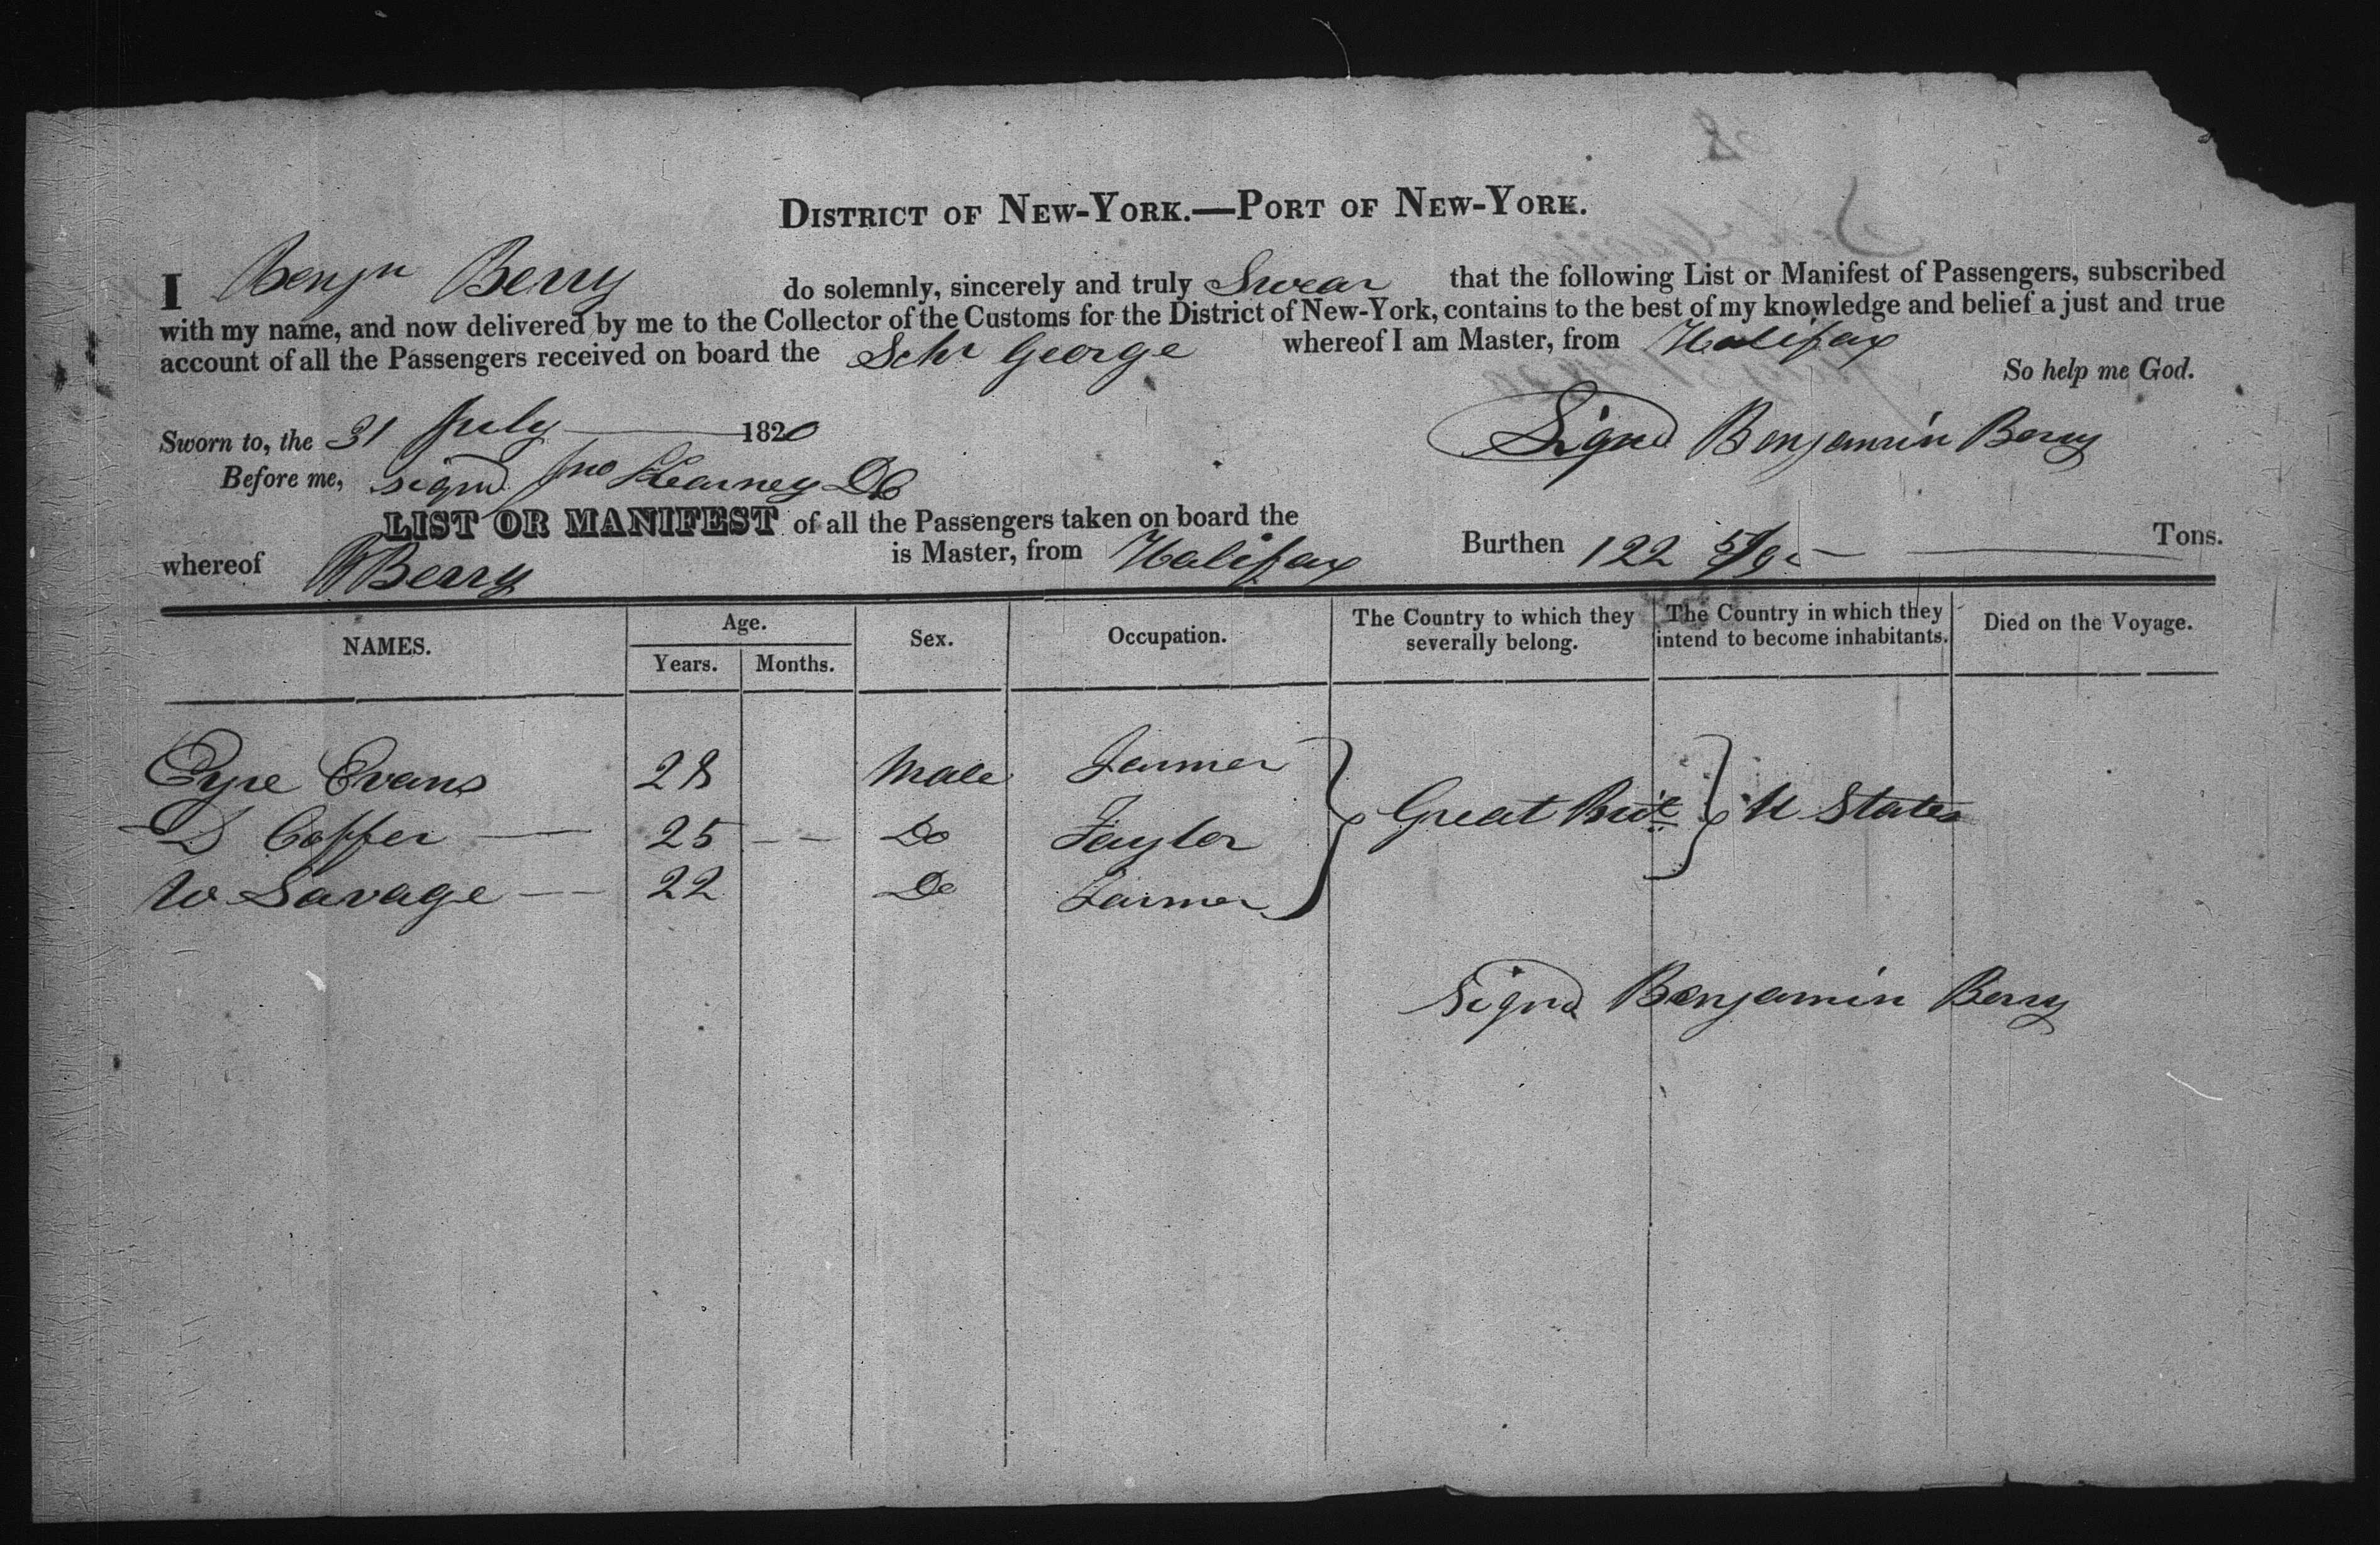 DISTRICT OF NEW-YORK.—PORT OF NEW-YORK.
I Benjn Berry do solemnly, sincerely and truly Swear that the following List or Manifest of Passengers, subscribed
with my name, and now delivered by me to the Collector of the Customs for the District of New-York, contains to the best of my knowledge and belief a just and true
account of all the Passengers received on board the Schr George whereof I am Master, from Halifax
So help me God.
Sworn to, the 31 July 1820
Signd Benjamin Berry
Before me, signd Jno Kearney DC
LIST OR MANIFEST of all the Passengers taken on board the
whereof B Berry is Master, from Halifax Burthen 122 Tons.
NAMES. Age. Sex. Occupation. The Country to which they severally belong. The Country in which they intend to become inhabitants. Died on the Voyage.
Years. Months.
Eyre Evans 28 Male Farmer
D Coffer — 25 — — Do Taylor Great Brit U States
W Savage — 22 Do Farmer
Signd Benjamin Berry